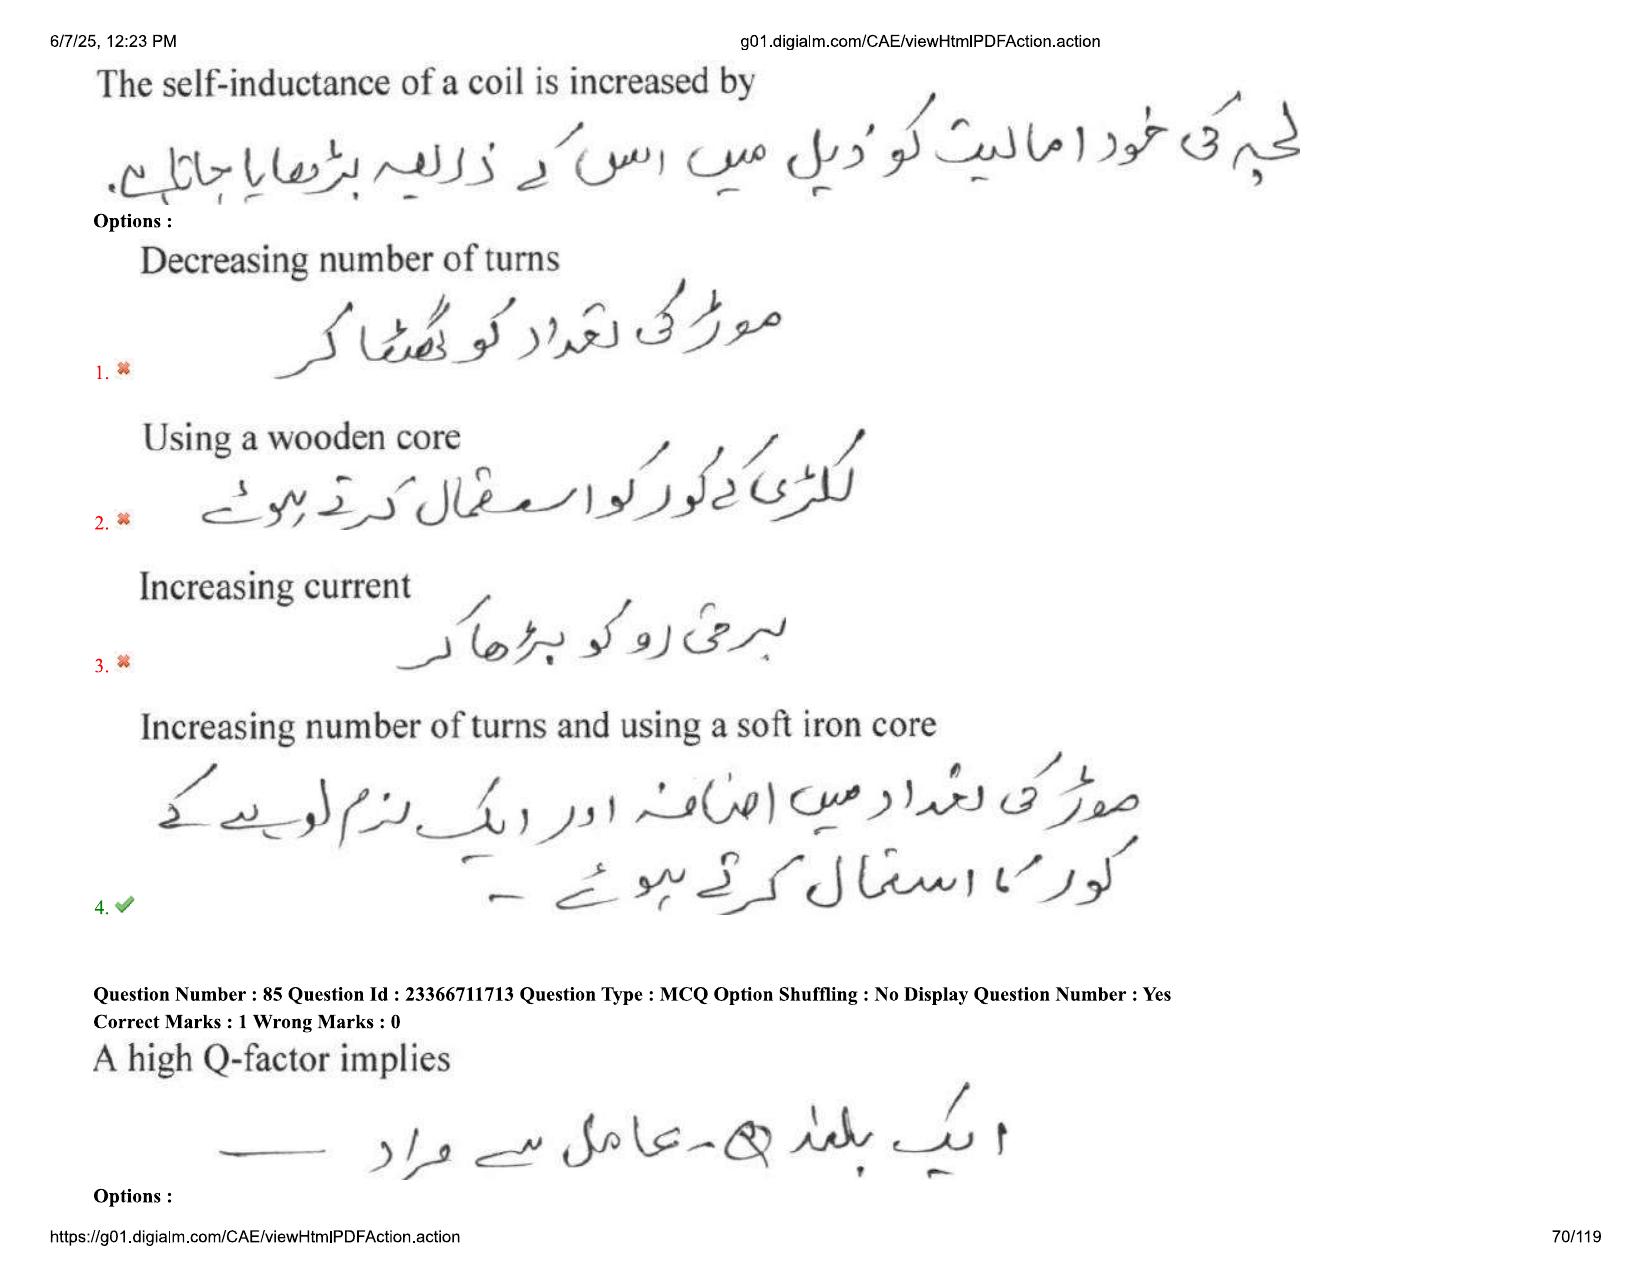 6/7/25, 12:23 PM
g01.digialm.com/CAE/viewHtmlPDFAction.action
The self-inductance of a coil is increased by
لچھے کی خود امالیت کو ذیل میں اس کے ذریعہ بڑھایا جاتا ہے۔
Options :
Decreasing number of turns
موڑ کی تعداد کو گھٹا کر
1.
Using a wooden core
لکڑی کے کور کو استعمال کرتے ہوئے
2.
Increasing current
برقی رو کو بڑھا کر
3.
Increasing number of turns and using a soft iron core
موڑ کی تعداد میں اضافہ اور ایک نرم لوہے کے
کور کا استعمال کرتے ہوئے -
4.
Question Number : 85 Question Id : 23366711713 Question Type : MCQ Option Shuffling : No Display Question Number : Yes
Correct Marks : 1 Wrong Marks : 0
A high Q-factor implies
ایک بلند Q-عامل سے مراد ___
Options :
https://g01.digialm.com/CAE/viewHtmlPDFAction.action
70/119